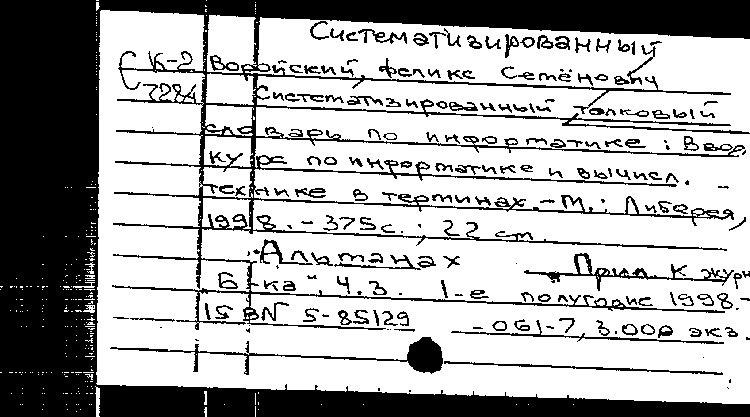 Систематизированный
К-2 Воройский, Феликс Семёнович
7284 Систематизированный толковый
словарь по информатике : Ввод.
курс по информатике и вычисл.
технике в терминах. - М. : Либерея,
1998. - 375 с. ; 22 см.
Альманах - Прил. к журн
"Б-ка", Ч.3. 1-е полугодие 1998. -
ISBN 5-85129 -061-7, 3.000 экз.